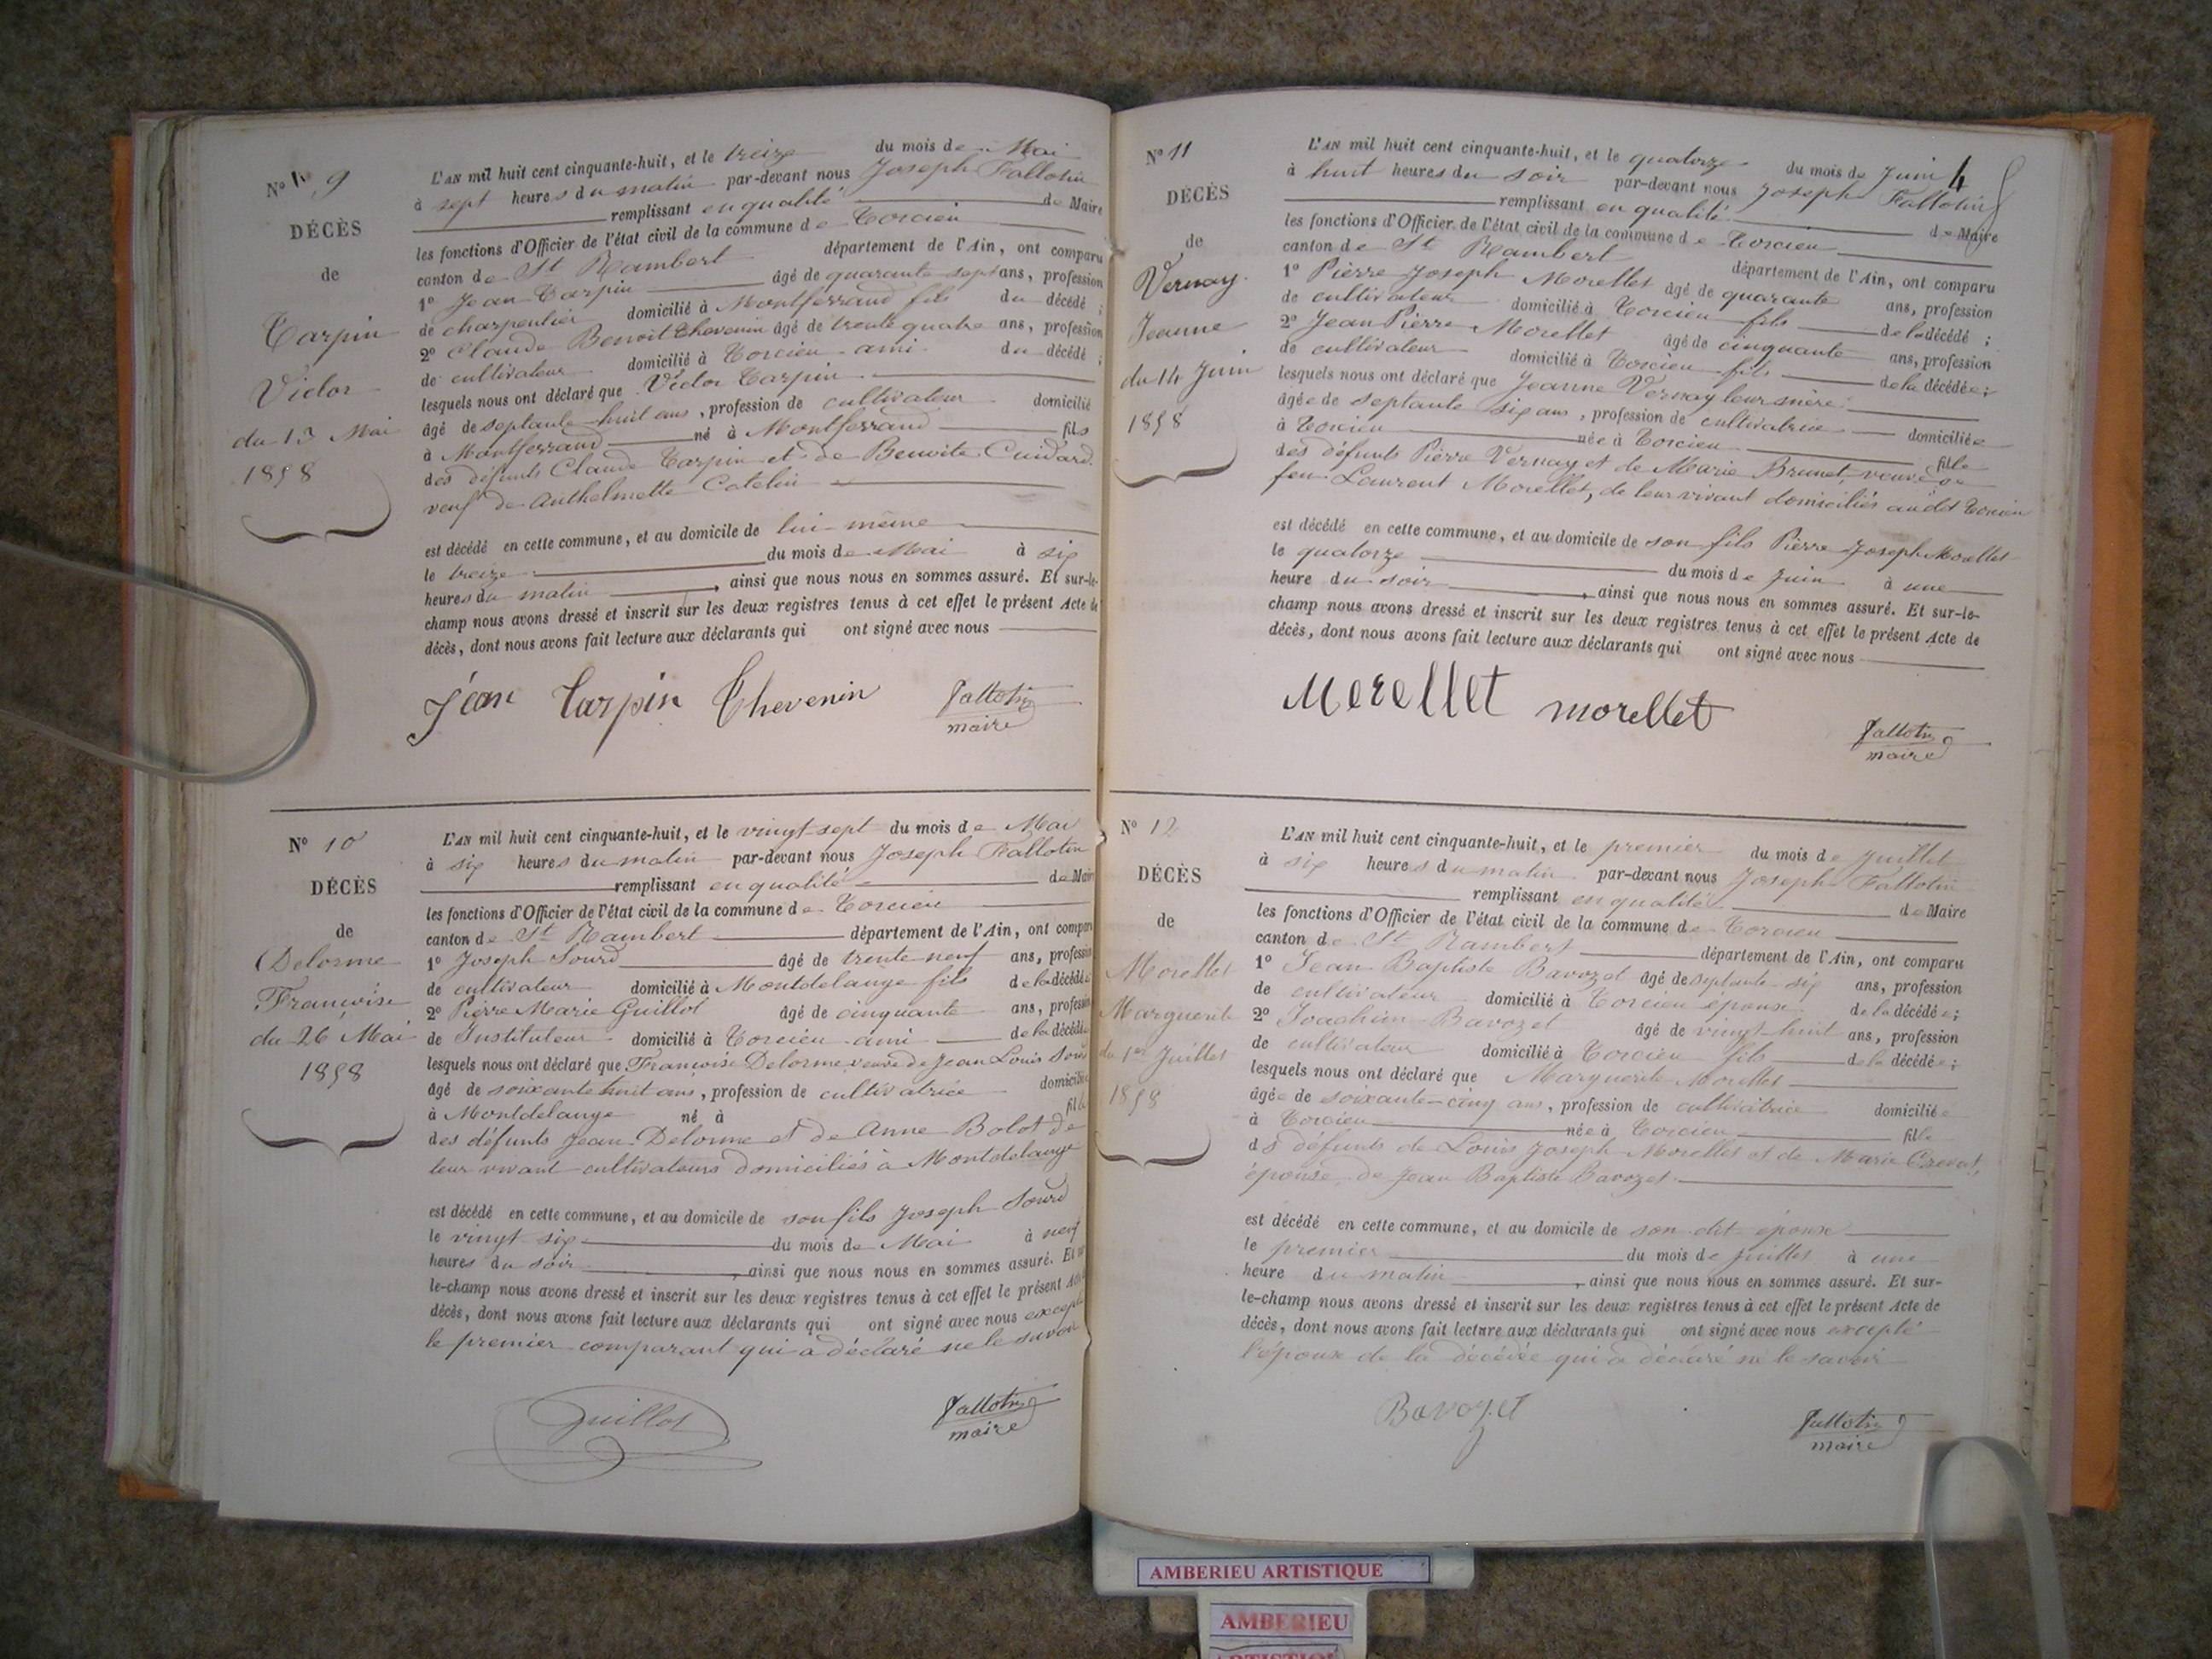 N° 9
DÉCÈS
de
Tarpin
Victor
du 13 Mai
1858
L'AN mil huit cent cinquante-huit, et le treize du mois de Mai
à sept heures du matin par-devant nous Joseph Fallotin
remplissant en qualité de Maire
les fonctions d'Officier de l'état civil de la commune de Torcieu
canton de St Rambert département de l'Ain, ont comparu
1° Jean Tarpin âgé de quarante sept ans, profession
de charpentier domicilié à Montferrand fils du décédé ;
2° Claude Benoit Thevenin âgé de trente quatre ans, profession
de cultivateur domicilié à Torcieu ami du décédé ;
lesquels nous ont déclaré que Victor Tarpin
âgé de septante huit ans, profession de cultivateur domicilié
à Montferrand né à Montferrand fils
des défunts Claude Tarpin et de Benoite Cuidard
veuf de Anthelmette Catelin
est décédé en cette commune, et au domicile de lui même
le treize du mois de Mai à six
heures du matin, ainsi que nous nous en sommes assuré. Et sur-le-
champ nous avons dressé et inscrit sur les deux registres tenus à cet effet le présent Acte de
décès, dont nous avons fait lecture aux déclarants qui ont signé avec nous
Jean Tarpin Thevenin Fallotin
maire
N° 10
DÉCÈS
de
Delorme
Françoise
du 26 Mai
1858
L'AN mil huit cent cinquante-huit, et le vingt sept du mois de Mai
à six heures du matin par-devant nous Joseph Fallotin
remplissant en qualité de Maire
les fonctions d'Officier de l'état civil de la commune de Torcieu
canton de St Rambert département de l'Ain, ont compar
1° Joseph Sourd âgé de trente neuf ans, profession
de cultivateur domicilié à Montdelange fils de la décédée
2° Pierre Marie Guillot âgé de cinquante ans, profession
de Instituteur domicilié à Torcieu ami de la décédée
lesquels nous ont déclaré que Françoise Delorme veuve de Jean Louis Sourd
âgé de soixante huit ans, profession de cultivatrice domiciliée
à Montdelange né à fille
des défunts Jean Delorme et de Anne Bolot de
leur vivant cultivateurs domiciliés à Montdelange
est décédé en cette commune, et au domicile de son fils Joseph Sourd
le vingt six du mois de Mai à neuf
heures du soir, ainsi que nous nous en sommes assuré. Et sur
le-champ nous avons dressé et inscrit sur les deux registres tenus à cet effet le présent Acte
décès, dont nous avons fait lecture aux déclarants qui ont signé avec nous excepté
le premier comparant qui a déclaré ne le savoir
Guillot Fallotin
maire
N° 11
DÉCÈS
de
Vernay
Jeanne
du 14 Juin
1858
L'AN mil huit cent cinquante-huit, et le quatorze du mois de Juin 4
à huit heures du soir par-devant nous Joseph Fallotin
remplissant en qualité de Maire
les fonctions d'Officier de l'état civil de la commune de Torcieu
canton de St Rambert département de l'Ain, ont comparu
1° Pierre Joseph Morellet âgé de quarante ans, profession
de cultivateur domicilié à Torcieu fils de la décédé ;
2° Jean Pierre Morellet âgé de cinquante ans, profession
de cultivateur domicilié à Torcieu fils de la décédée ;
lesquels nous ont déclaré que Jeanne Vernay leur mère
âgée de septante six ans, profession de cultivatrice domiciliée
à Torcieu née à Torcieu fille
des défunts Pierre Vernay et de Marie Brunet, veuve de
feu Laurent Morellet, de leur vivant domiciliés audit Torcieu
est décédé en cette commune, et au domicile de son fils Pierre Joseph Morellet
le quatorze du mois de Juin à une
heure du soir, ainsi que nous nous en sommes assuré. Et sur-le-
champ nous avons dressé et inscrit sur les deux registres tenus à cet effet le présent Acte de
décès, dont nous avons fait lecture aux déclarants qui ont signé avec nous
Merellet morellet Fallotin
maire
N° 12
DÉCÈS
de
Morellet
Marguerite
du 1er Juillet
1858
L'AN mil huit cent cinquante-huit, et le premier du mois de Juillet
à six heures du matin par-devant nous Joseph Fallotin
remplissant en qualité de Maire
les fonctions d'Officier de l'état civil de la commune de Torcieu
canton de St Rambert département de l'Ain, ont comparu
1° Jean Baptiste Bavozet âgé de septante six ans, profession
de cultivateur domicilié à Torcieu époux de la décédée ;
2° Joachim Bavozet âgé de vingt huit ans, profession
de cultivateur domicilié à Torcieu fils de la décédée ;
lesquels nous ont déclaré que Marguerite Morellet
âgée de soixante-cinq ans, profession de cultivatrice domiciliée
à Torcieu née à Torcieu fille
ds défunts de Louis Joseph Morellet et de Marie
épouse de Jean Baptiste Bavozet
est décédé en cette commune, et au domicile de son dit époux
le premier du mois de Juillet à une
heure du matin, ainsi que nous nous en sommes assuré. Et sur-
le-champ nous avons dressé et inscrit sur les deux registres tenus à cet effet le présent Acte de
décès, dont nous avons fait lecture aux déclarants qui ont signé avec nous excepté
l'époux de la décédée qui a déclaré ne le savoir
Bavozet Fallotin
maire
AMBERIEU ARTISTIQUE
AMBERIEU
ARTISTIQUE